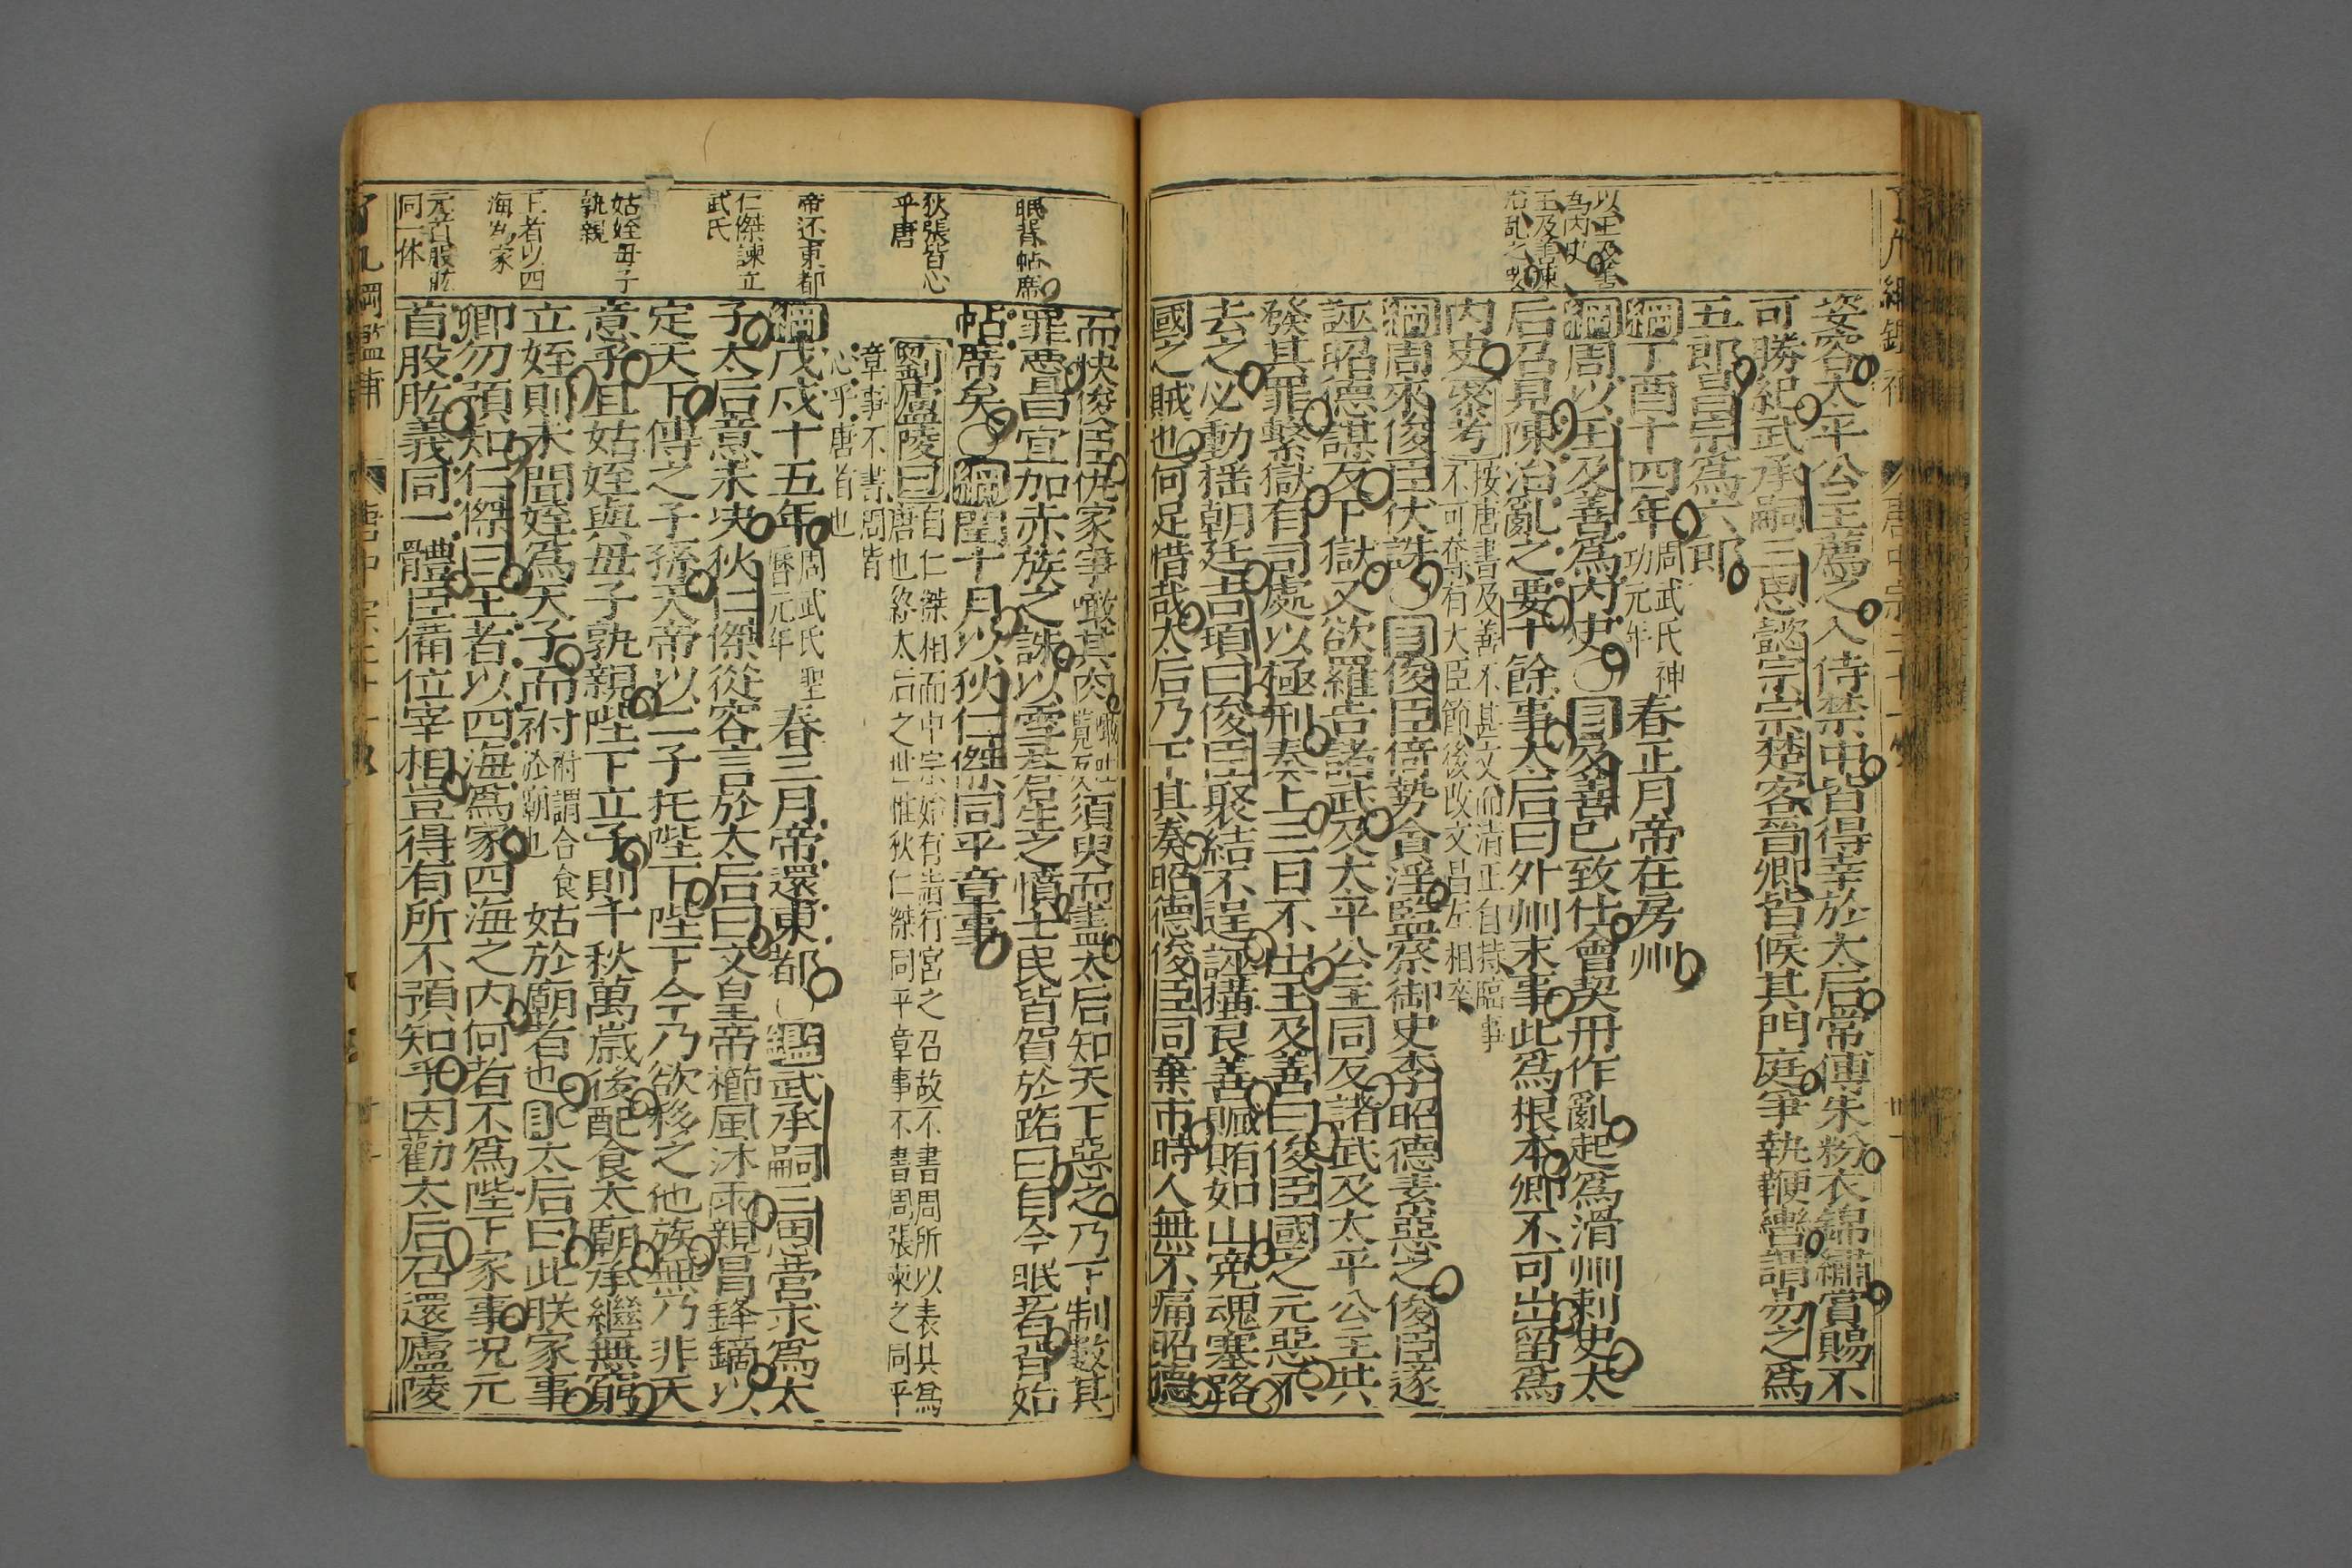 了凡綱鑑補
唐中宗二十一
姿容太平公主薦之入侍禁中皆得幸於太后常傅朱粉衣錦繡賞賜不
可勝紀武承嗣三思懿宗宗楚客晉卿皆候其門庭爭執鞭轡謂易之爲
五郎昌宗爲六郎
綱丁酉十四年周武氏神
功元年春正月帝在房州
綱周以王及善爲內史〇目及善已致仕會契丹作亂起爲滑州刺史太
后召見陳治亂之要十餘事太后曰外州末事此爲根本卿不可出留爲
內史彚考按唐書及善不甚文而清正自持臨事
不可奪有大臣節後改文昌左相卒
綱周來俊臣伏誅〇目俊臣倚勢貪淫監察御史李昭德素惡之俊臣遂
誣昭德謀反下獄又欲羅告諸武及太平公主同反諸武及太平公主共
發其罪繫獄有司處以極刑奏上三日不出王及善曰俊臣國之元惡不
去之必動揺朝廷吾頊曰俊臣聚結不逞誣搆良善贓賄如山寃魂塞路
國之賊也何足惜哉太后乃下其奏昭德俊臣同棄市時人無不痛昭德
以王及善
為內史
王及善陳
治亂之要
而快俊臣仇家爭噉其肉須臾而盡太后知天下惡之乃下制數其
罪惡曰宜加赤族之誅以雪蒼生之憤士民皆賀於路曰自今眠者背始
帖席矣〇綱閏十月以狄仁傑同平章事
劉廬陵曰自仁傑相而中宗始有詣行宮之召故不書周所以表其爲
唐也終太后之世惟狄仁傑同平章事不書周張柬之同平
章事不書周皆
心乎唐者也
綱戊戌十五年周武氏聖
曆元年春三月帝還東都〇鑑武承嗣三思營求爲太
子太后意未決狄仁傑從容言於太后曰文皇帝櫛風沐雨親冒鋒鏑以
定天下傳之子孫大帝以二子托陛下陛下今乃欲移之他族無乃非天
意乎且姑姪與母子孰親陛下立子則千秋萬歲後配食太廟承繼無窮
立姪則未聞姪爲天子而祔祔謂合食
於廟也姑於廟者也目太后曰此朕家事
卿勿預知仁傑曰王者以四海爲家四海之內何者不爲陛下家事況元
首股肱義同一體臣備位宰相豈得有所不預知乎因勸太后召還廬陵
眠背帖席
狄張皆心
乎唐
帝还東都
仁傑諫立
武氏
姑姪母子
孰親
王者以四
海为家
元首股肱
同一体
了凡綱鑑補
唐中宗二十一